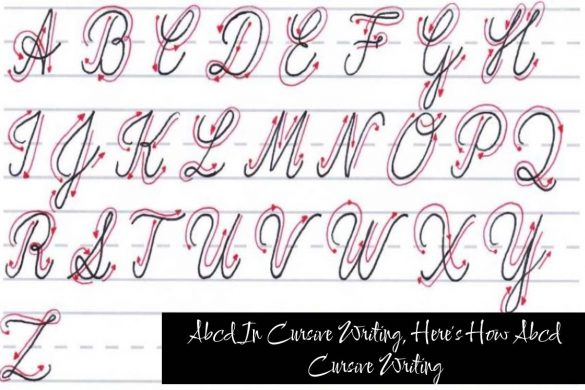 A B C D E F G H
I J K L M N O P Q
R S T U V W X Y
Z
Abcd In Cursive Writing, Here's How Abcd
Cursive Writing